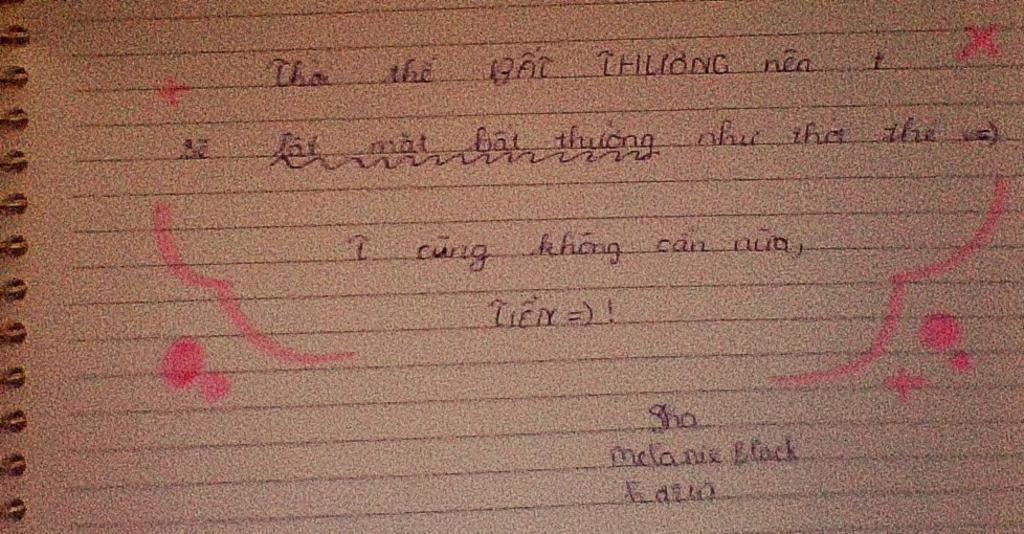 Tha thể BẤT THƯỜNG nên t
sẽ lật mặt bất thường như tha thể =)
T cũng không cần nữa,
TIỄN =) !
Melanie Black